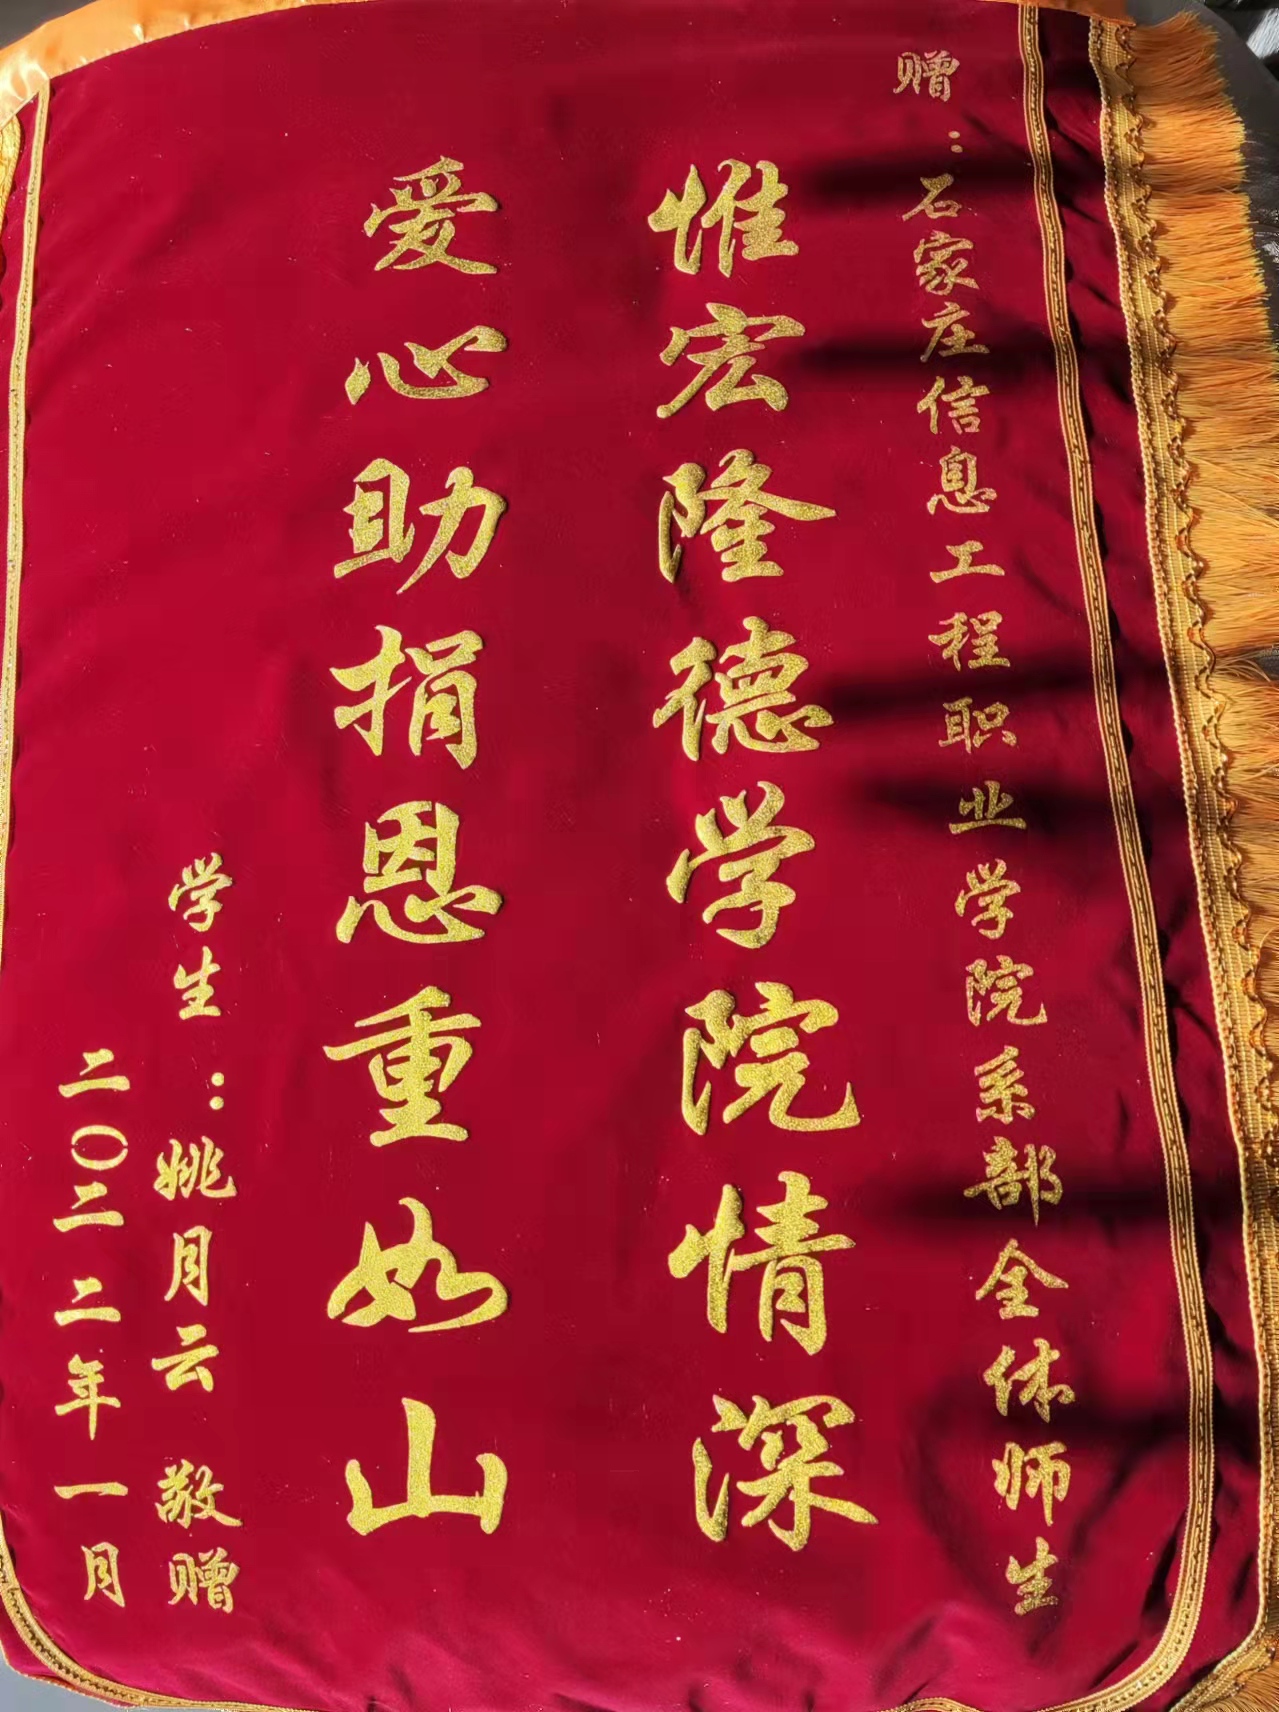 赠：石家庄信息工程职业学院系部全体师生
惟宏隆德学院情深
爱心助捐恩重如山
学生：姚月云 敬赠
二〇二二年一月